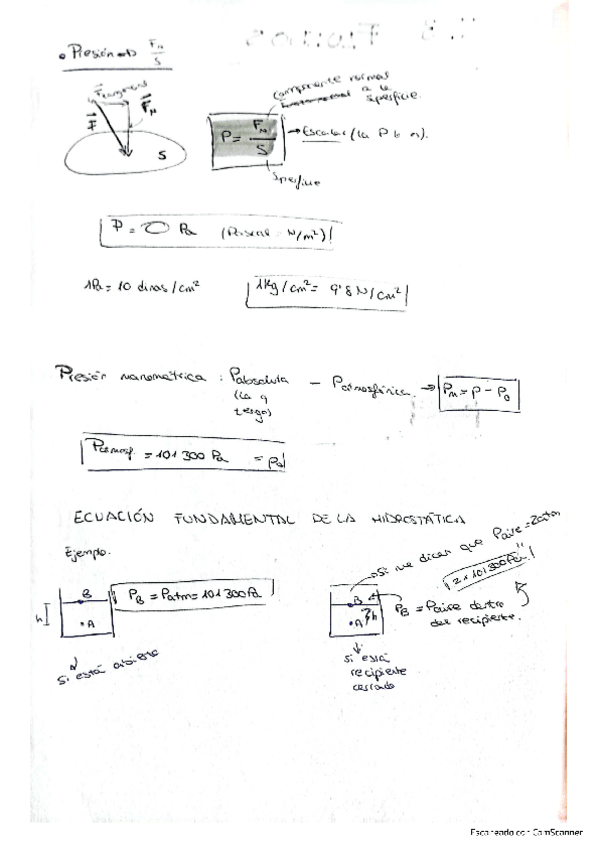 • Presión F_N/S
F tangencial
F_N
F
S
P = F_N/S
Componente normal
a la
superficie.
→ Escalar (la P lo es).
Superficie
P = Pa (Pascal = N/m²)
1Pa = 10 dinas/cm²
1kg/cm² = 9'8 N/cm²
Presión manométrica : Pabsoluta - Patmosférica → Pm = P - P0
(la q
tengo)
Patmosf. = 101300 Pa = P0
ECUACIÓN FUNDAMENTAL DE LA HIDROSTÁTICA
Ejemplo.
h
B
A
PB = Patm = 101300 Pa
Si está abierto
→ Si me dicen que Paire = 2atm
2·101300Pa
B
A
h
PB = Paire dentro
del recipiente.
Si está
recipiente
cerrado
Escaneado con CamScanner